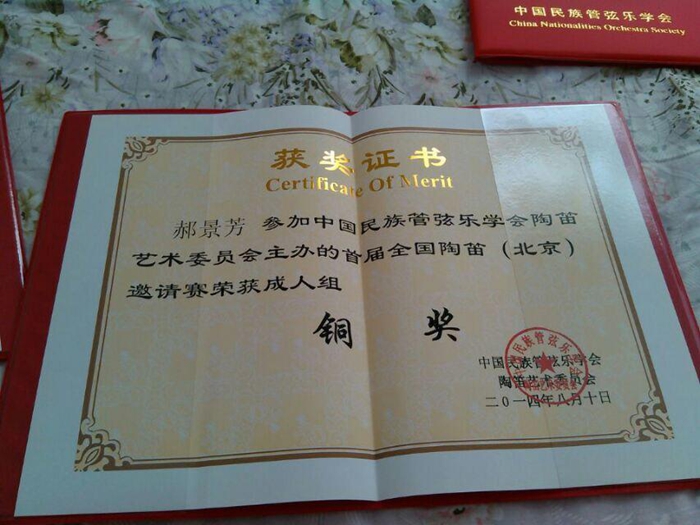 中国民族管弦乐学会
China Nationalities Orchestra Society
获奖证书
Certificate Of Merit
郝景芳 参加中国民族管弦乐学会陶笛
艺术委员会主办的首届全国陶笛（北京）
邀请赛荣获成人组
铜 奖
中国民族管弦乐学会
陶笛艺术委员会
二〇一四年八月十日